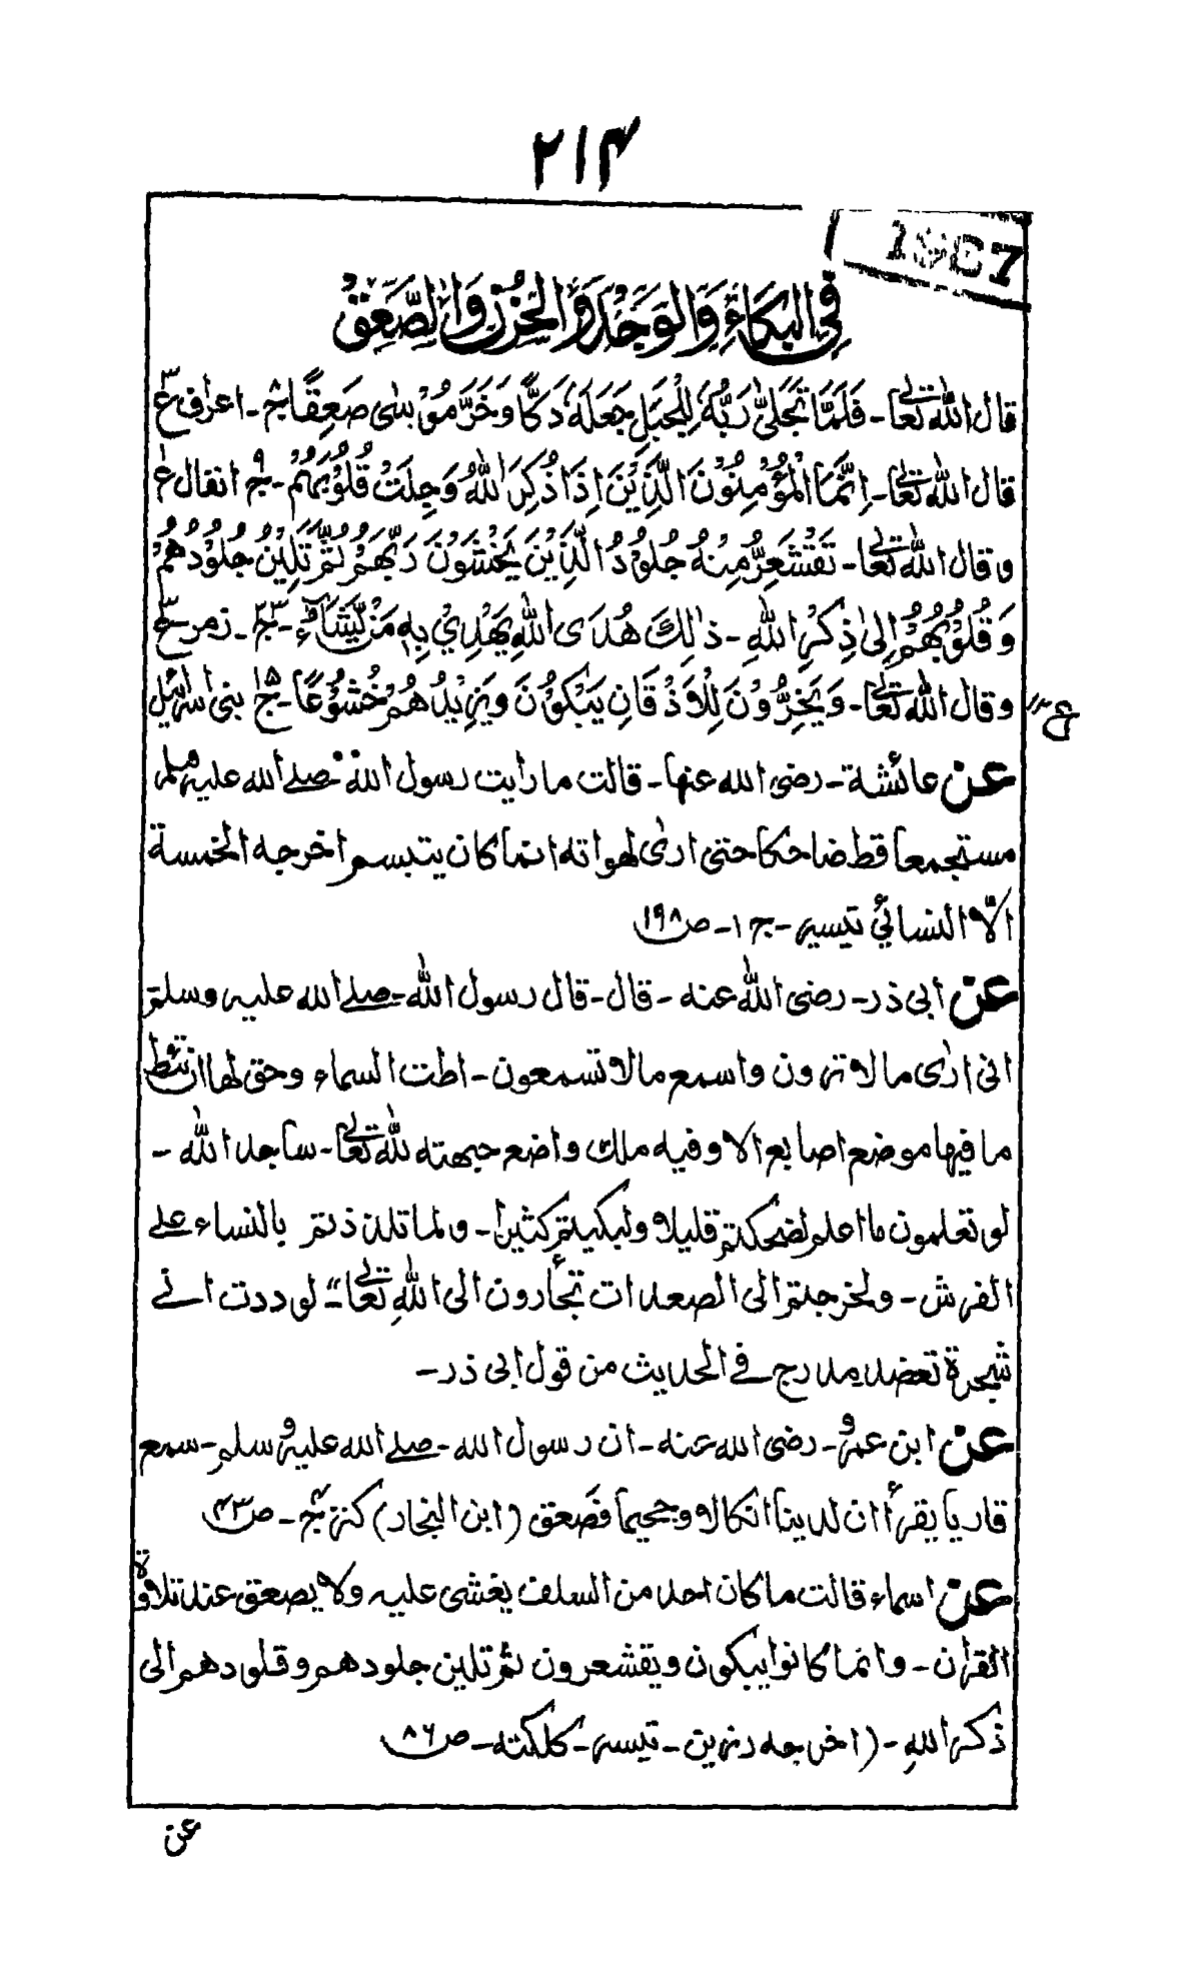 ۲۱۴
1987
فِي الْبُكَاءِ وَالْوَجْدِ وَالْحُزْنِ وَالصَّعِقِ
قال الله تعالیٰ ـ فَلَمَّا تَجَلّٰی رَبُّهٗ لِلْجَبَلِ جَعَلَهٗ دَكًّا وَّخَرَّ مُوْسٰی صَعِقًا ـ اعراف ع
قال الله تعالیٰ ـ اِنَّمَا الْمُؤْمِنُوْنَ الَّذِيْنَ اِذَا ذُكِرَ اللهُ وَجِلَتْ قُلُوْبُهُمْ ـ ج۹ انفال ع
وقال الله تعالیٰ ـ تَقْشَعِرُّ مِنْهُ جُلُوْدُ الَّذِيْنَ يَخْشَوْنَ رَبَّهُمْ ثُمَّ تَلِيْنُ جُلُوْدُهُمْ
وَقُلُوْبُهُمْ اِلیٰ ذِكْرِ اللهِ ـ ذٰلِكَ هُدَى اللهِ يَهْدِيْ بِهٖ مَنْ يَّشَآءُ ـ ج۲۳ ـ زمر ع۳
وقال الله تعالیٰ ـ وَيَخِرُّوْنَ لِلْاَذْقَانِ يَبْكُوْنَ وَيَزِيْدُهُمْ خُشُوْعًا ـ ج۱۵ بنی اسرائیل
ع
عن عائشة ـ رضی الله عنها ـ قالت ما رأيت رسول الله ـ صلے الله عليه وسلم
مستجمعا قط ضاحكا حتى ارىٰ لهواته انما كان يتبسم اخرجه الخمسة
الّا النسائي تيسير ـ ج ۱ ـ ص ۱۹۸
عن ابی ذر ـ رضی الله عنه ـ قال ـ قال رسول الله ـ صلے الله عليه وسلم
انی ارٰى ما لا ترون واسمع ما لا تسمعون ـ اطت السماء وحق لها ان تئط
ما فيها موضع اصابع الا وفيه ملك واضع جبهته لله تعالیٰ ـ ساجدا لله ـ
لو تعلمون ما اعلم لضحكتم قليلا ولبكيتم كثيرا ـ ولما تلذذتم بالنساء علے
الفرش ـ ولخرجتم الى الصعدات تجأرون الى اللهِ تعالیٰ" لوددت انے
شجرة تعضد مدرج فے الحديث من قول ابی ذر ـ
عن ابن عمرو ـ رضی الله عنه ـ ان رسول الله ـ صلے الله عليه وسلم ـ سمع
قاريا يقرأ ان لدينا انكالا وجحيما فصعق (ابن النجار) كنز ج۴ ـ ص ۴۳
عن اسماء قالت ما كان احد من السلف يغشى عليه ولا يصعق عند تلاوة
القرأن ـ وانما كانوا يبكون ويقشعرون ثم تلين جلودهم وقلودهم الى
ذكر اللهِ ـ (اخرجه رزين ـ تيسر ـ كلكته ـ ص ۸۶
عن